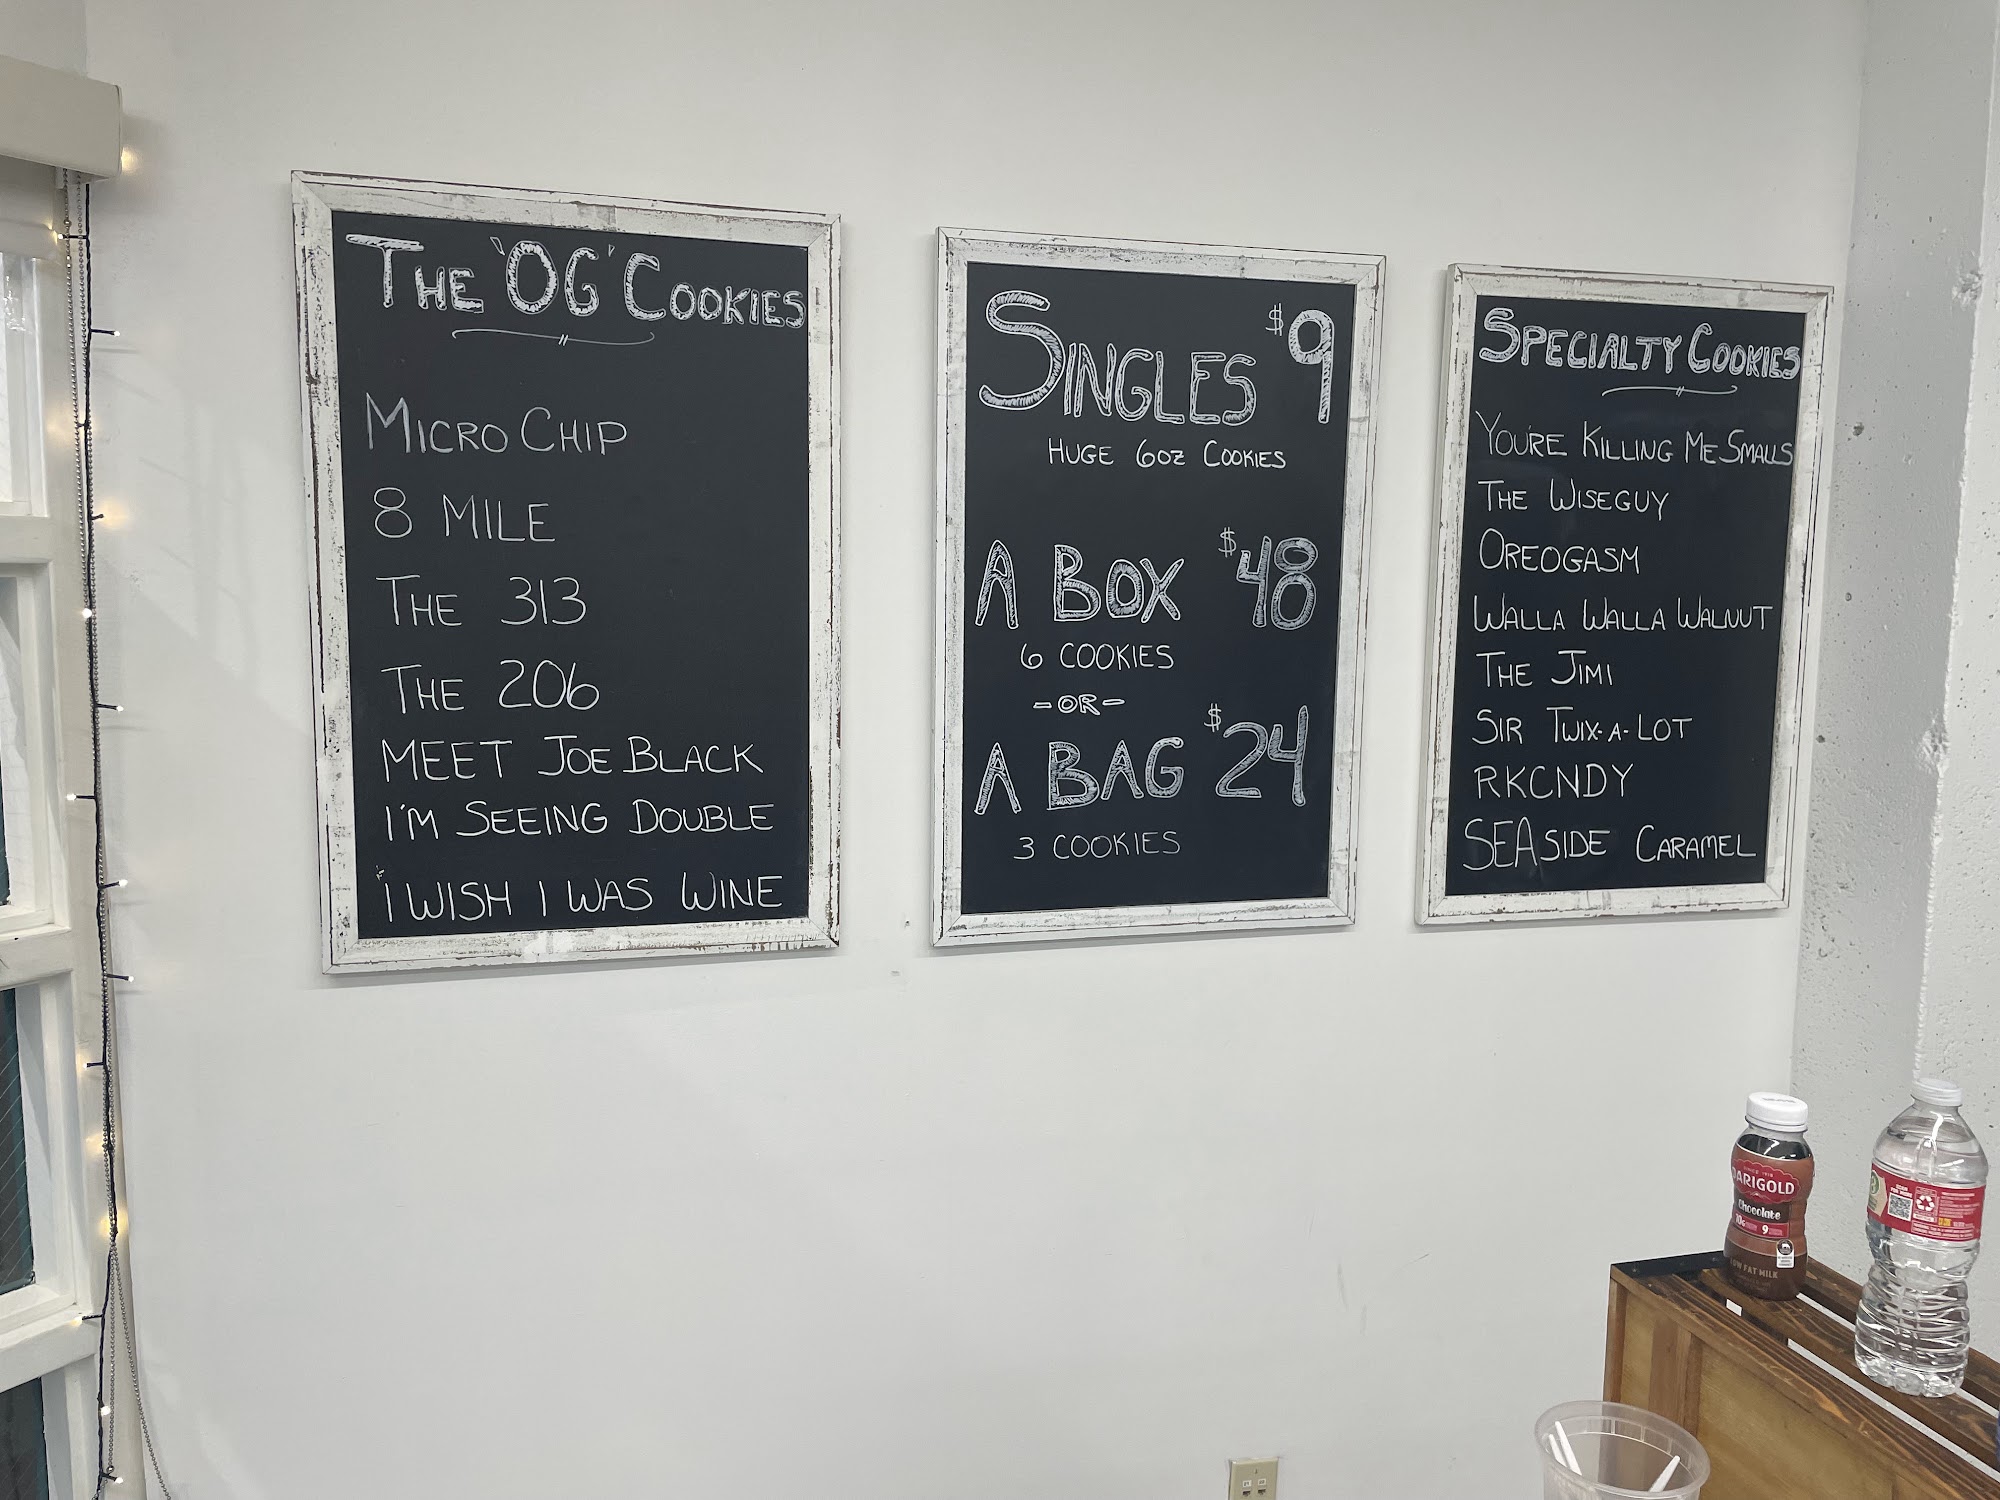 THE 'OG' COOKIES
MICRO CHIP
8 MILE
THE 313
THE 206
MEET JOE BLACK
I'M SEEING DOUBLE
I WISH I WAS WINE
SINGLES $9
HUGE 6OZ COOKIES
A BOX $48
6 COOKIES
-OR-
A BAG $24
3 COOKIES
SPECIALTY COOKIES
YOU'RE KILLING ME SMALLS
THE WISEGUY
OREOGASM
WALLA WALLA WALNUT
THE JIMI
SIR TWIX-A-LOT
RKCNDY
SEASIDE CARAMEL
DARIGOLD
Chocolate
9
LOW FAT MILK